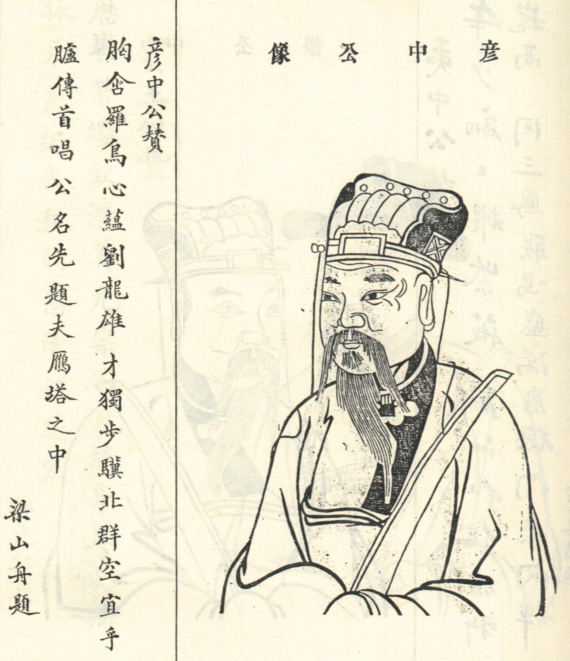 彦中公像
彦中公贊
胸舍羅鳥心蘊劉龍雄才獨步驥北群空宜乎
臚傳首唱公名先題夫鴈塔之中
梁山舟題